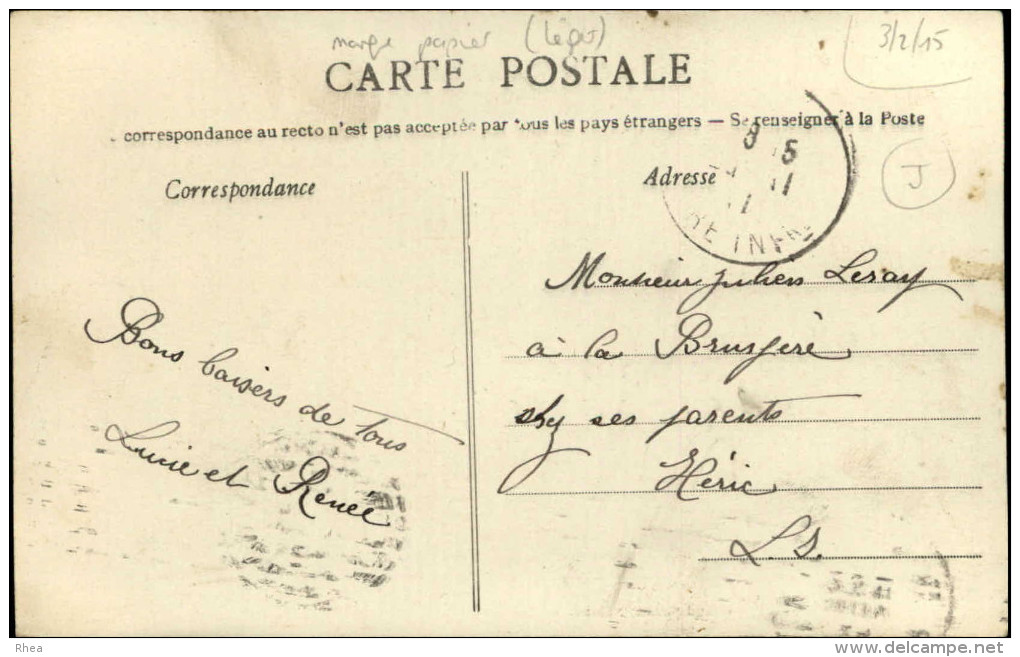 marge papier (léger)
3/2/15
CARTE POSTALE
correspondance au recto n'est pas acceptée par tous les pays étrangers — Se renseigner à la Poste
J
Correspondance
Adresse
8 5
11
RE INFRE
Bons baisers de tous
Lucie et Renée
Monsieur Julien Leray
à la
chez ses parents
Héric
L. I.
Rhea
www.delcampe.net